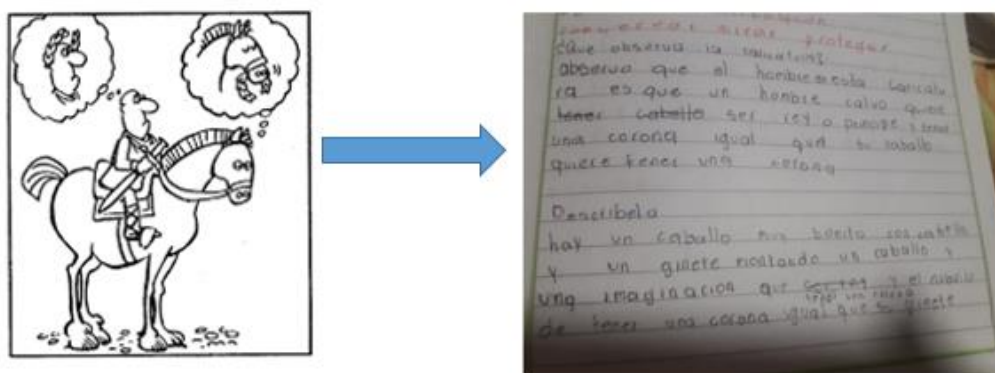 conocer, mirar, proteger
¿Que observas la caricatura?
observa que el hombre esta caricatu
ra es que un hombre calvo quiere
tener cabello ser rey o principe y tener
una corona igual que su caballo
quiere tener una corona
Describela
hay un caballo muy bonito con cabello
y un ginete montando un caballo y
una imaginacion que ser rey y el caballo
tener una corona
de tener una corona igual que su ginete